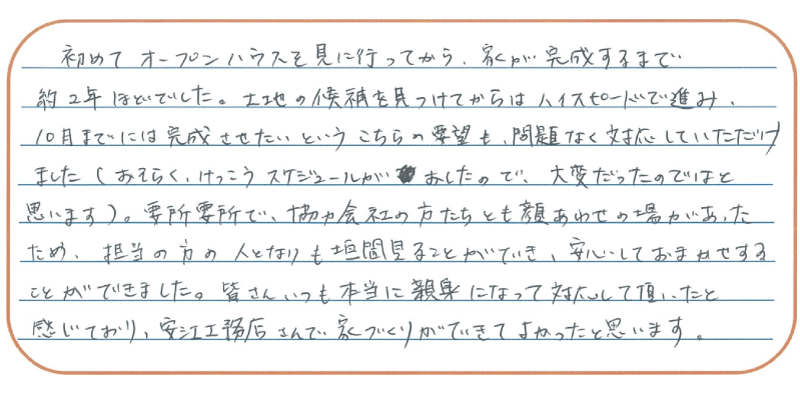 初めて オープンハウスを見に行ってから、家が完成するまで
約2年ほどでした。土地の候補を見つけてからはハイスピードで進み、
10月までには完成させたいというこちらの要望も、問題なく対応していただけ
ました(おそらく、けっこうスケジュールがおしたので、大変だったのではと
思います)。要所要所で、協力会社の方たちとも顔あわせの場があった
ため、担当の方の人となりも垣間見ることができ、安心しておまかせする
ことができました。皆さんいつも本当に親身になって対応して頂いたと
感じており、安江工務店さんで家づくりができてよかったと思います。